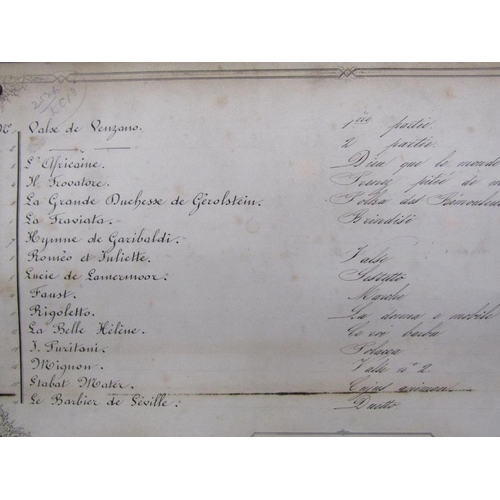 Nº. Valse de Venzano. 1ère partie.
2 — " — " — 2 partie.
L'Africaine. Dieu que le monde
Il Trovatore. Prenez pitié de
La Grande Duchesse de Gérolstein. Polka des
La Traviata. Brindisi
7 Hymne de Garibaldi.
Roméo et Juliette. Valse
Lucie de Lamermoor: Sestetto
Faust. Marche
Rigoletto. La donna e mobile
La Belle Hélène. Ce roi barbu
I. Puritani. Polacca
Mignon. Valse nº 2.
Stabat Mater. Cujus animam
Le Barbier de Séville: Duetto